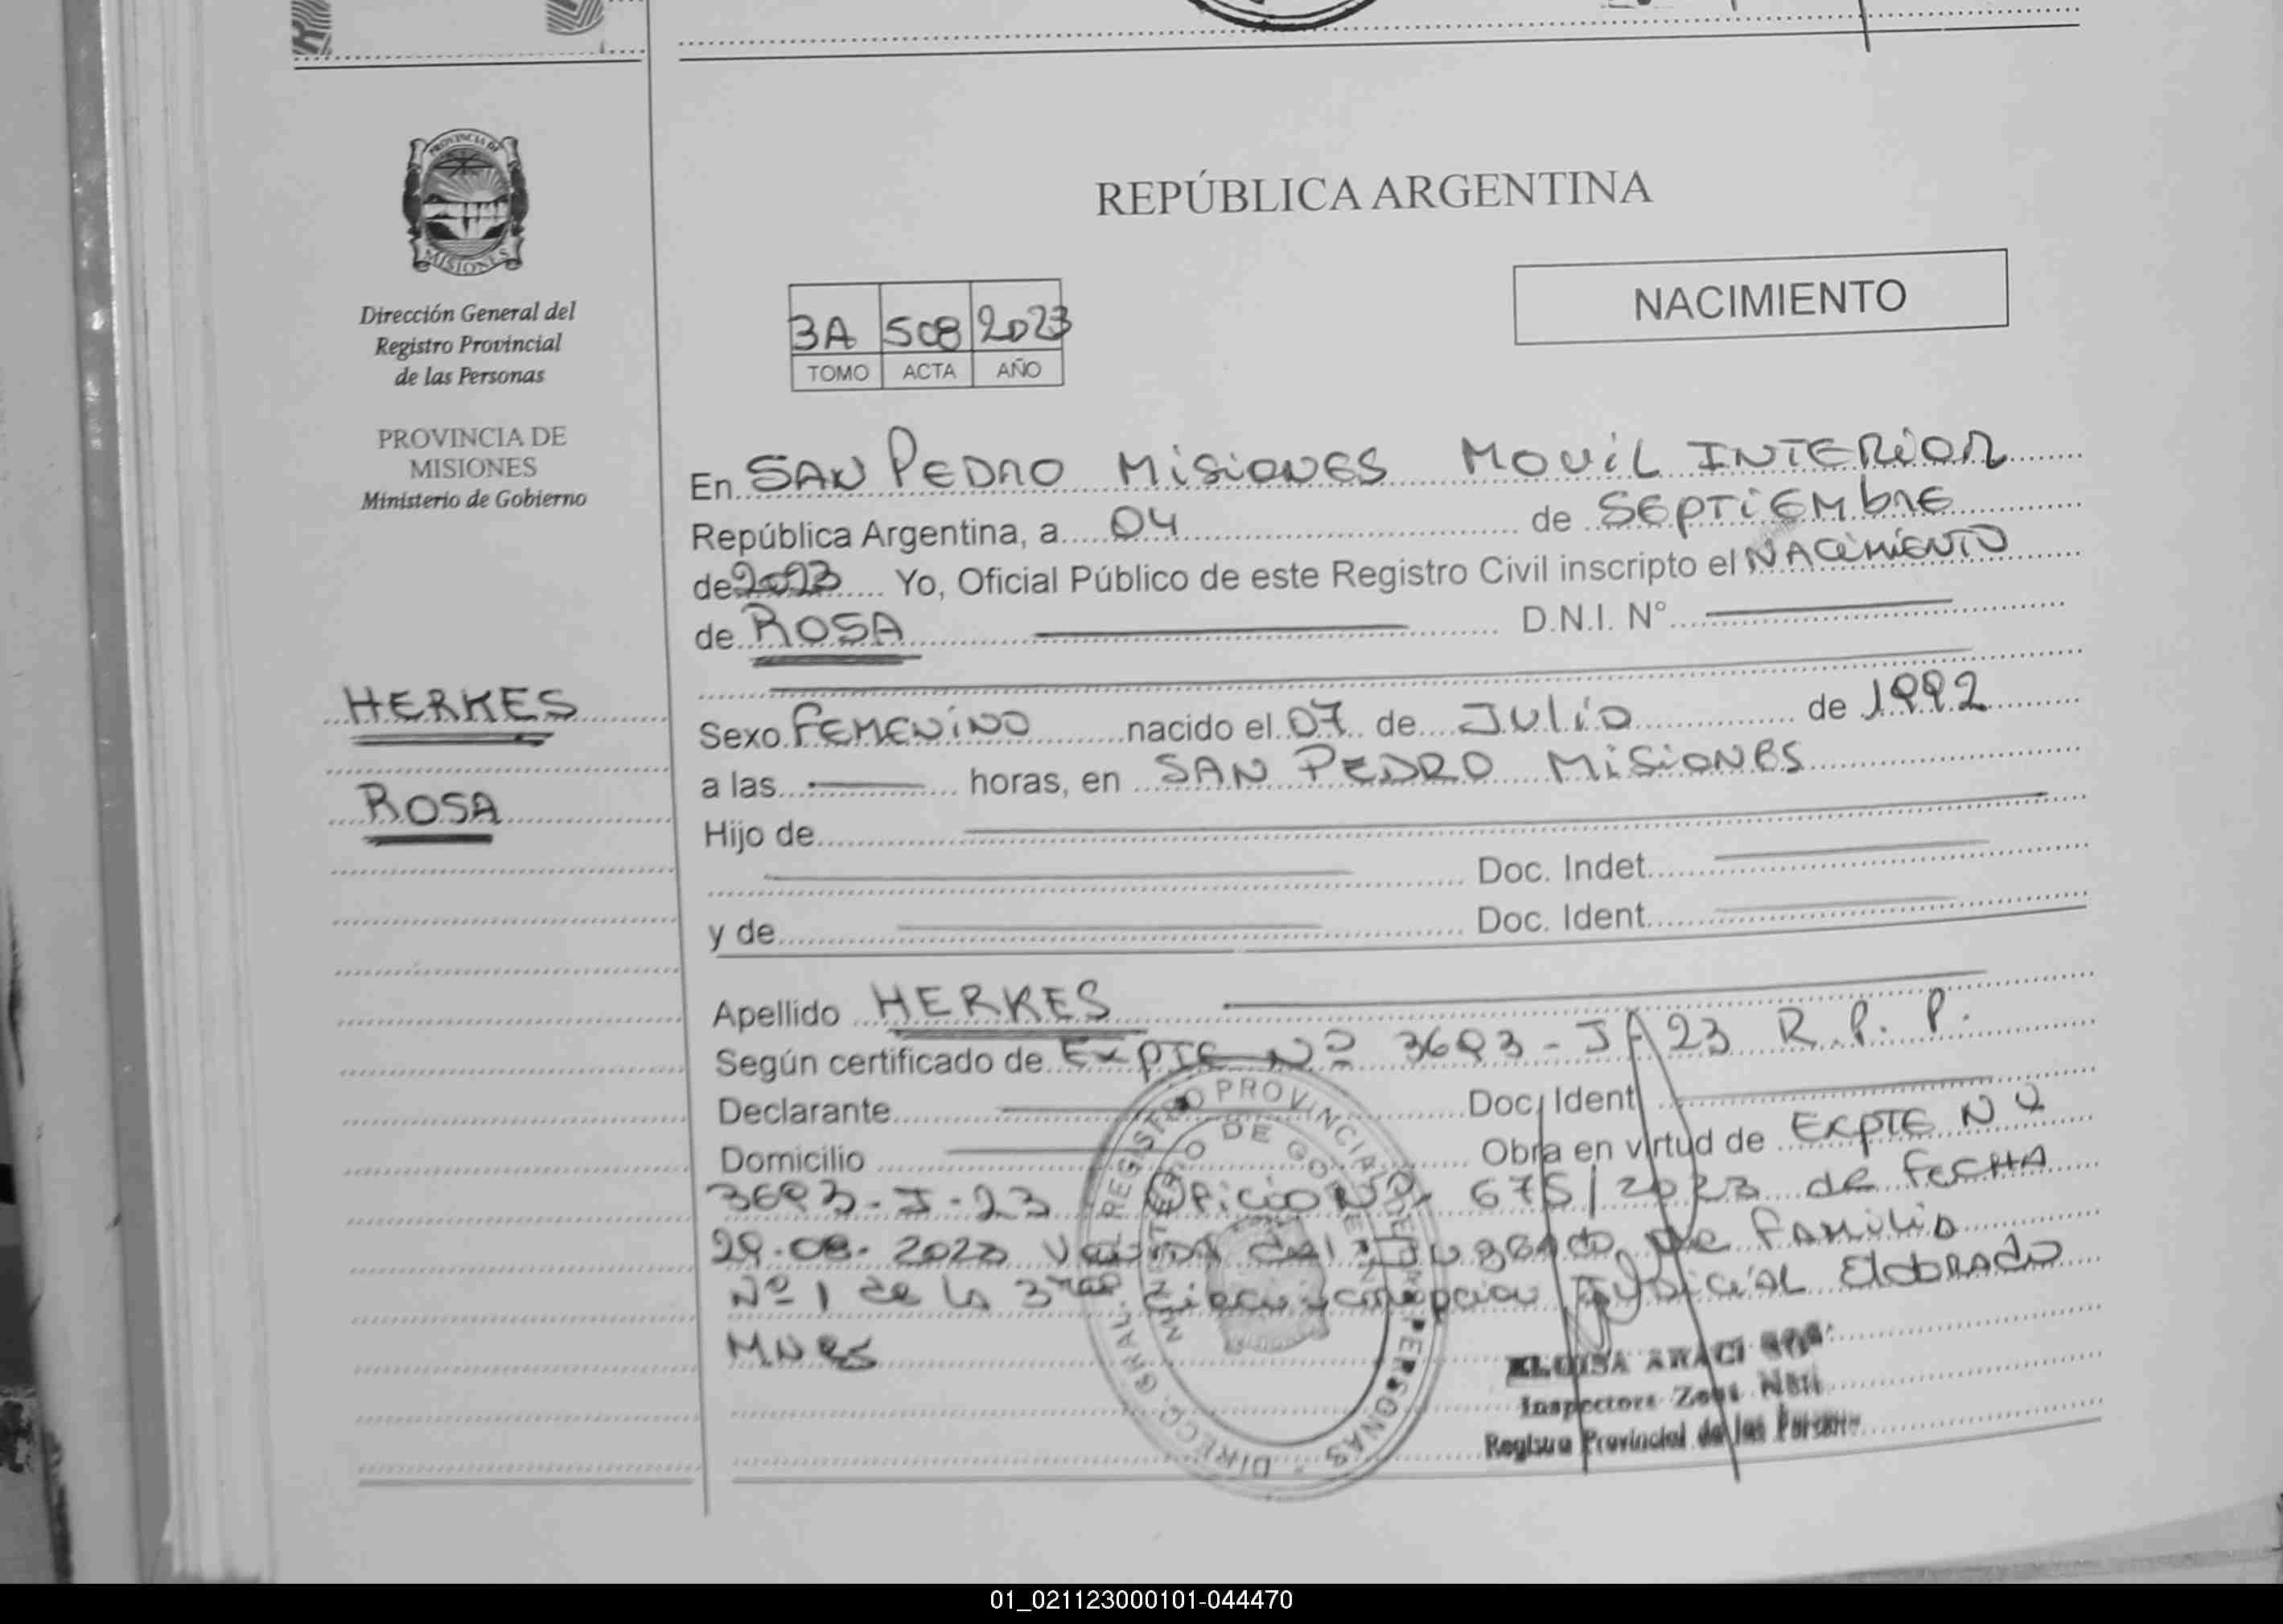 PROVINCIA DE
MISIONES
Dirección General del
Registro Provincial
de las Personas
PROVINCIA DE
MISIONES
Ministerio de Gobierno
HERKES
ROSA
REPÚBLICA ARGENTINA
NACIMIENTO
3A 508 2023
TOMO ACTA AÑO
En SAN PEDRO MISIONES MOVIL INTERIOR
República Argentina, a 04 de SEPTIEMBRE
de 2023 Yo, Oficial Público de este Registro Civil inscripto el NACIMIENTO
de ROSA D.N.I. N°
Sexo FEMENINO nacido el 07 de JULIO de 1992
a las horas, en SAN PEDRO MISIONES
Hijo de
Doc. Indet.
y de Doc. Ident.
Apellido HERKES
Según certificado de EXPTE Nº 3693 - J - 23 R. P. P.
Declarante Doc. Ident.
Domicilio Obra en virtud de EXPTE Nº
3693 - J - 23 OFICIO Nº 675/2023 de FECHA
29.08.2023 del Juzgado de Familia
Nº 1 de la 3ra Circunscripcion Judicial Elaborado
MNES
DIRECC. GRAL. DEL REGISTRO PROVINCIAL DE LAS PERSONAS
MINISTERIO DE GOBIERNO
ELOISA ARACI
Inspectora Zona
Registro Provincial de las Personas
01_021123000101-044470